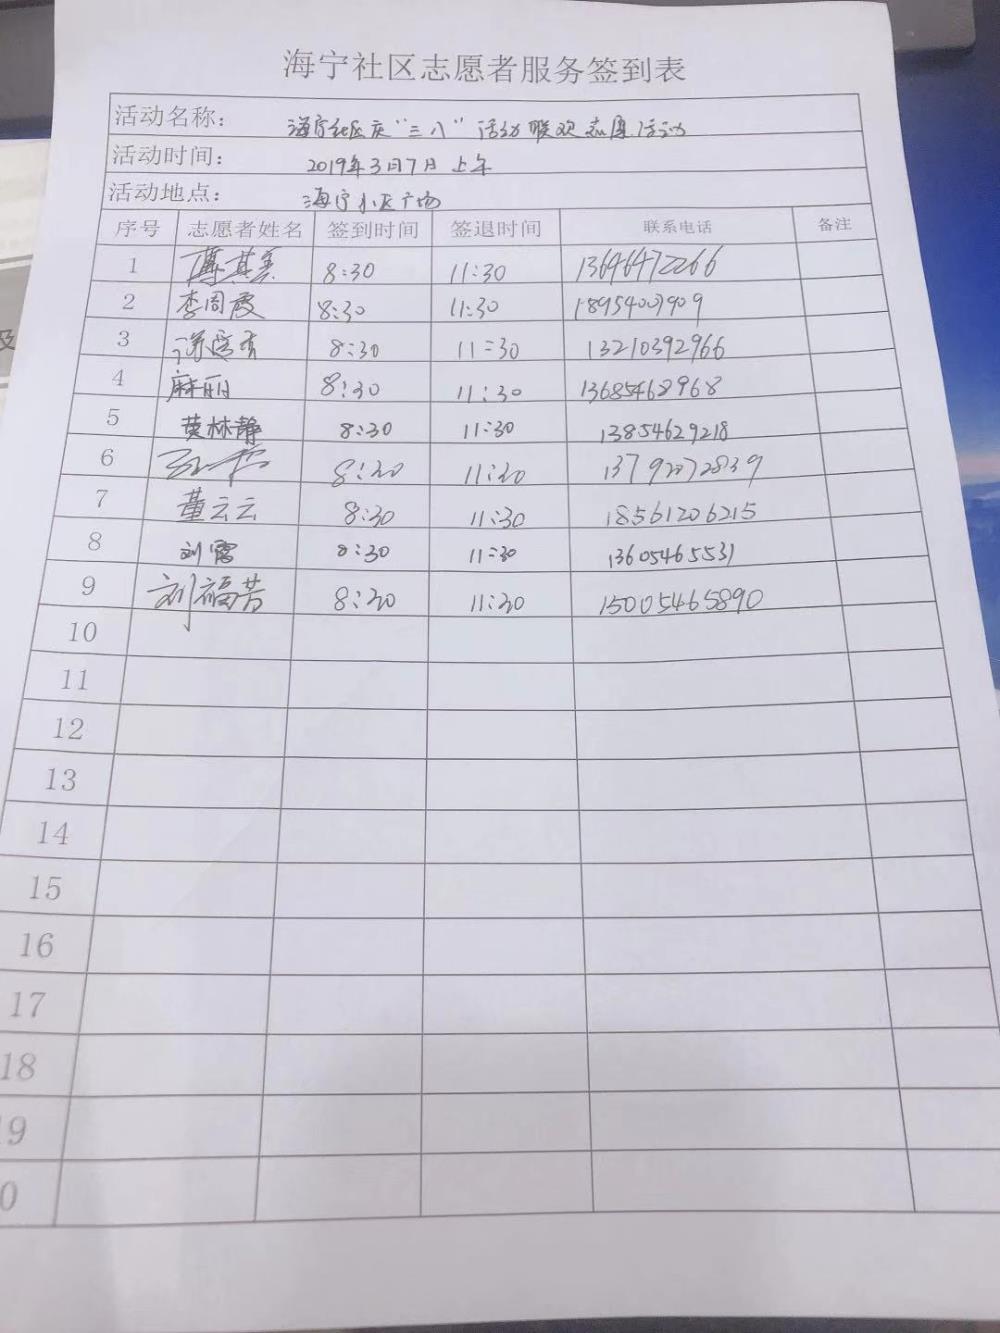 海宁社区志愿者服务签到表
活动名称： 海宁社区庆“三八”活动联欢志愿活动
活动时间： 2019年3月7日上午
活动地点： 海宁小区广场
序号 志愿者姓名 签到时间 签退时间 联系电话 备注
1 8:30 11:30 13646472266
2 李周霞 8:30 11:30 18954007909
3 8:30 11:30 13210392966
4 麻丽 8:30 11:30 13685468968
5 黄林静 8:30 11:30 13854629218
6 8:30 11:30 13792072839
7 董云云 8:30 11:30 18561206215
8 刘霄 8:30 11:30 13605465531
9 刘福芳 8:30 11:30 15005465890
10
11
12
13
14
15
16
17
18
19
0
及